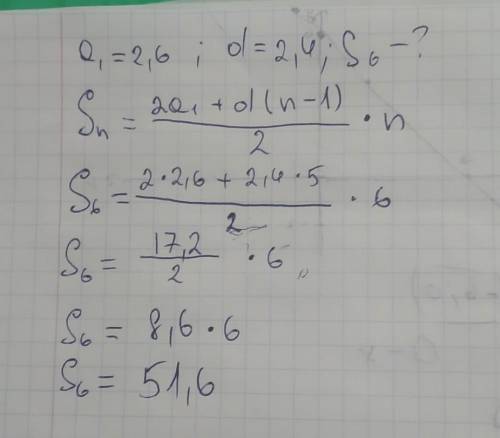 a₁ = 2,6 ; d = 2,4 ; S₆ - ?
Sₙ = (2a₁ + d(n-1))/2 · n
S₆ = (2·2,6 + 2,4·5)/2 · 6
S₆ = 17,2/2 · 6
S₆ = 8,6 · 6
S₆ = 51,6